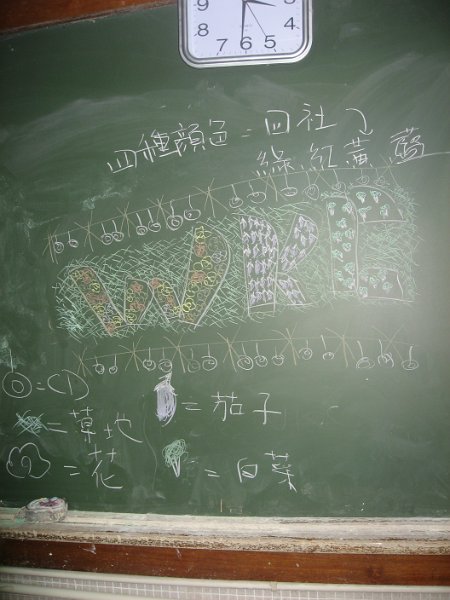 9 3
8 4
7 6 5
四種顏色=四社
綠.紅.黃.藍
WRB
=CD
=草地
=花
=茄子
=白菜